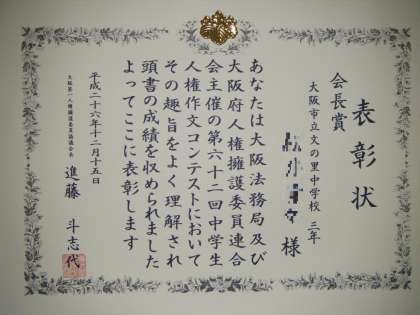 表彰状
会長賞
大阪市立文の里中学校 三年
様
あなたは大阪法務局及び
大阪府人権擁護委員連合
会主催の第六十二回中学生
人権作文コンテストにおいて
その趣旨をよく理解され
頭書の成績を収められました
よってここに表彰します
平成二十六年十二月十五日
大阪第一人権擁護委員協議会長
進藤 斗志代